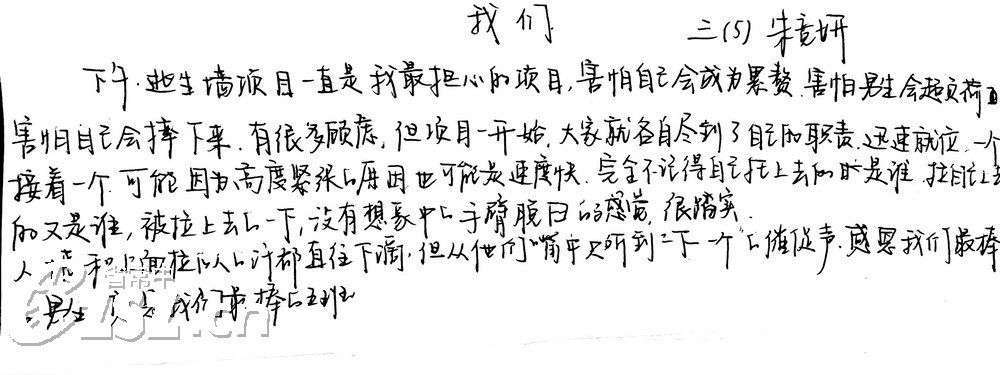 我们
三(5) 朱竞妍
下午.逃生墙项目一直是我最担心的项目,害怕自己会成为累赘.害怕男生会超负荷
害怕自己会摔下来.有很多顾虑,但项目一开始,大家就各自尽到了自己的职责.迅速就位.一个
接着一个.可能因为高度紧张的原因也可能是速度快.完全不记得自己托上去的时是谁.拉自己上去
的又是谁,被拉上去的一下,没有想象中的手臂脱臼的感觉,很踏实.
人 和上面拉的人的汗都直往下滴,但从他们嘴中只听到"下一个"的催促声.感恩我们最棒
男生 我们最棒的五班